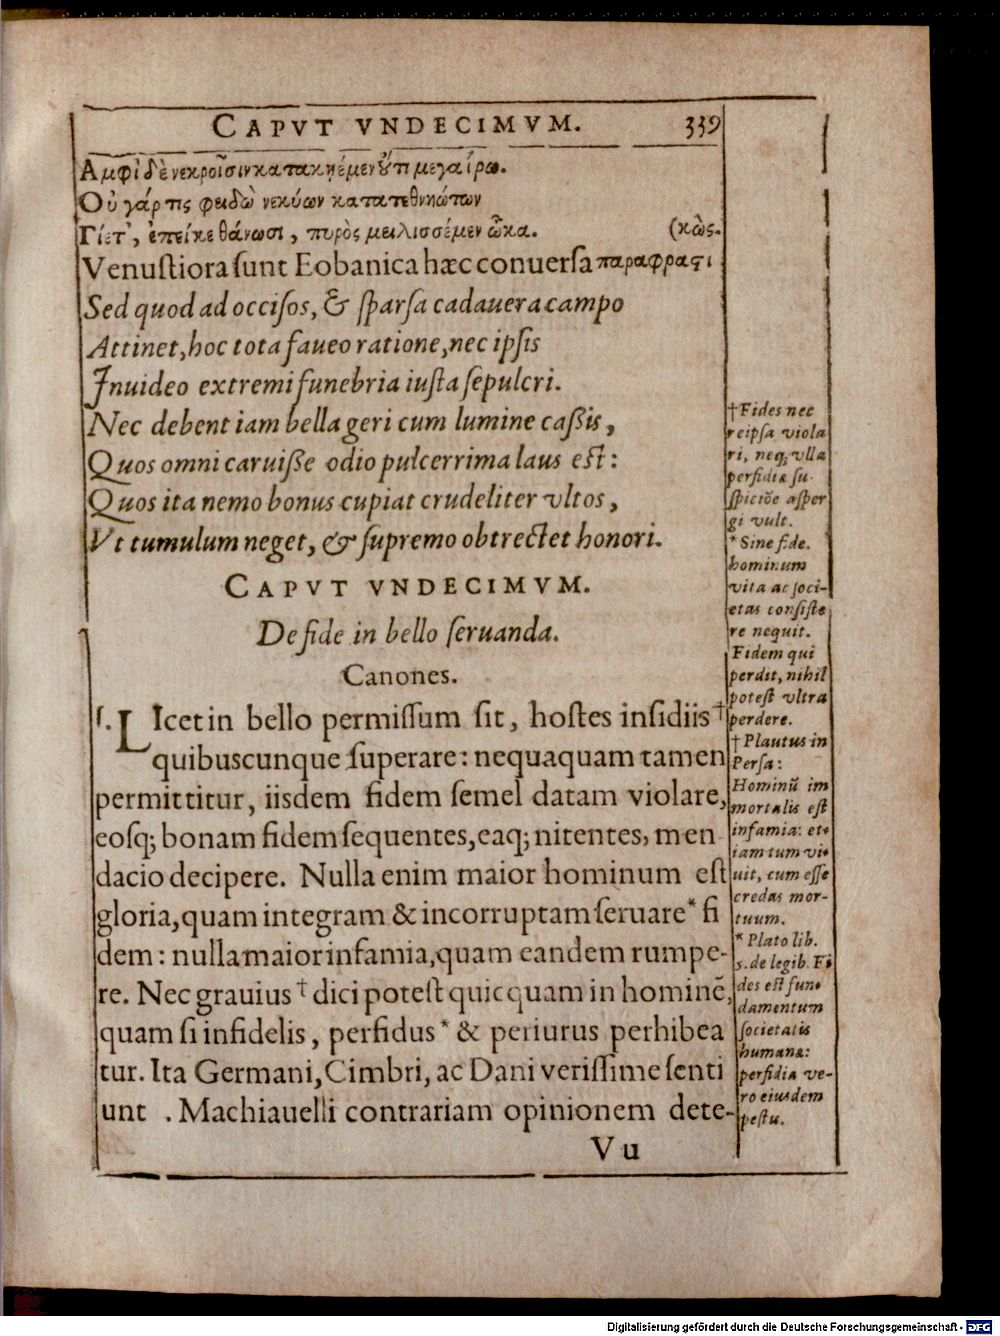 CAPVT VNDECIMVM. 339
Ἀμφὶ δὲ νεκροῖσιν κατακηέμεν οὔτι μεγαίρω.
Οὐ γάρ τις φειδὼ νεκύων κατατεθνηώτων
Γίετ', ἐπεί κε θάνωσι, πυρὸς μειλισσέμεν ὦκα. (κὼς.
Venuſtiora ſunt Eobanica hæc conuerſa παραφραςι
Sed quod ad occiſos, & ſparſa cadauera campo
Attinet, hoc tota faueo ratione, nec ipſis
Inuideo extremi funebria iuſta ſepulcri.
Nec debent iam bella geri cum lumine caßis,
Quos omni caruiße odio pulcerrima laus est:
Quos ita nemo bonus cupiat crudeliter vltos,
Vt tumulum neget, & ſupremo obtrectet honori.
CAPVT VNDECIMVM.
De fide in bello ſeruanda.
Canones.
1. LIcet in bello permiſſum ſit, hoſtes inſidiis †
quibuscunque ſuperare: nequaquam tamen
permittitur, iisdem fidem ſemel datam violare,
eoſq; bonam fidem ſequentes, eaq; nitentes, men
dacio decipere. Nulla enim maior hominum eſt
gloria, quam integram & incorruptam ſeruare * fi
dem: nulla maior infamia, quam eandem rumpe-
re. Nec grauius † dici poteſt quicquam in hominẽ,
quam ſi infidelis, perfidus * & periurus perhibea
tur. Ita Germani, Cimbri, ac Dani veriſſime ſenti
unt . Machiauelli contrariam opinionem dete-
Vu
† Fides nec
reipſa viola
ri, neq; vlla
perfidiæ ſu-
ſpiciõe aſper
gi vult.
* Sine fide.
hominum
vita ac ſoci-
etas conſiſte
re nequit.
Fidem qui
perdit, nihil
poteſt vltra
perdere.
† Plautus in
Perſa:
Hominũ im
mortalis eſt
infamia: et-
iam tum vi-
uit, cum eſſe
credas mor-
tuum.
* Plato lib.
5. de legib. Fi
des eſt fun-
damentum
ſocietatis
humanæ:
perfidia ve-
ro eiusdem
peſtu.
Digitalisierung gefördert durch die Deutsche Forschungsgemeinschaft - DFG